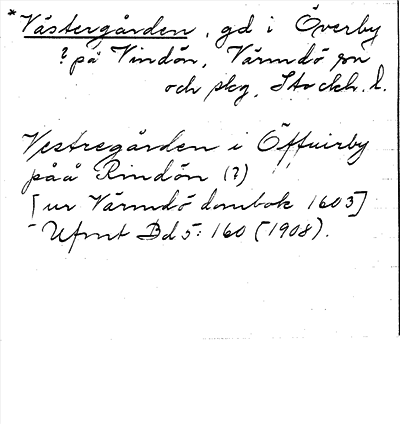 *Västergården, gd i Överby
? på Vindön, Värmdö sn
och skg, Stockh. l.
Vestregården i Öffuirby
påå Rindön (?)
[ur Värmdö dombok 1603]
- Ufmt Bd 5: 160 (1908).